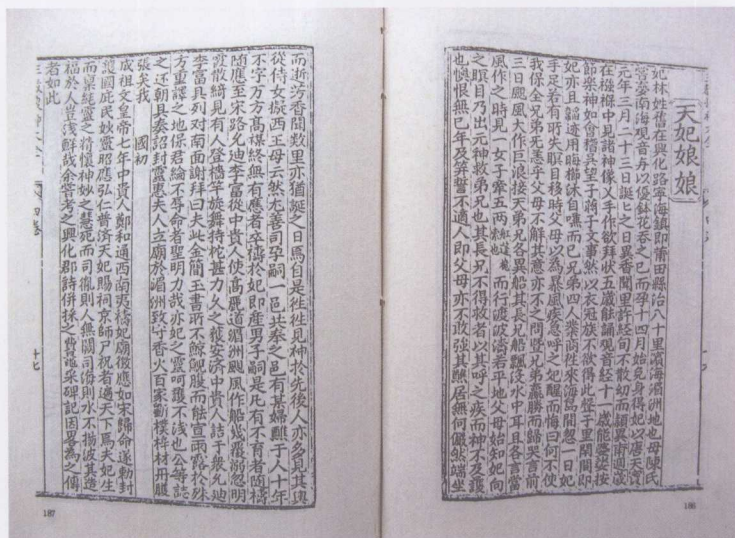 天妃娘娘
妃林姓舊在興化路寧海鎮即莆田縣治八十里濱海湄洲地也母陳氏
嘗夢南海觀音與以優鉢花吞之已而孕十四月始免身得妃以唐天寶
元年三月二十三日誕誕之日異香聞里許經旬不散幼而頴異甫周歲
在襁褓中見諸神像叉手作欲拜狀五歲能誦觀音經十一歲能婆娑按
節樂神如會稽吳望子蔣子文事然以衣冠族不欲得此聲于里閈間即
妃亦且韜迹用晦櫛沐自嗛而已兄弟四人業商徃來海島間忽一日妃
手足若有所失瞑目移時父母以為暴風疾急呼之妃醒而悔曰何不使
我保全兄弟無恙乎父母不解其意亦不之問暨兄弟贏勝而歸哭言前
三日颶風大作巨浪接天弟兄各異船其長兄船飄沒水中耳且各言當
風作之時見一女子牽五兩而行渡波濤若平地父母始知妃向
之瞑目乃出元神救弟兄也其長兄不得救者以其呼之疾而神不及護
也懊恨無已年及笄誓不適人即父母亦不敢強其醮居無何儼然端坐
186
而逝芳香聞數里亦猶誕之日焉自是徃徃見神於先後人亦多見其輿
從侍女擬西王母云然尤善司孕嗣一邑共奉之邑有某婦醮于人十年
不字万方高禖終無有應者卒禱於妃即產男子嗣是凡有不育者隨禱
隨應至宋路允迪李富從中貴人使高麗道湄洲颶風作船幾覆溺忽明
霞散綺見有人登檣竿旋舞持柁甚力久之獲安濟中貴人詰于衆允迪
李富具列對南面謝拜曰夫此金簡玉書所不鯨鯢腹而能宣雨露於殊
方重譯之地保君綸不辱命者聖明力哉亦妃之靈呵護不淺也公等誌
之還朝具奏詔封靈惠夫人立廟於湄洲致守香火百家斵樸梓材丹雘
張矣我 國初
成祖文皇帝七年中貴人鄭和通西南夷禱妃廟徵應如宋歸命遂勅封
護國庇民妙靈昭應弘仁普濟天妃賜祠京師尸祝者遍天下焉夫妃生
而稟純靈之精懷神妙之慧死而司胤則人無閼司海則水不揚波其造
福於人豈淺鮮哉余嘗考之興化郡誌併採之費 采碑記因畧為之傳
者如此
十七
187